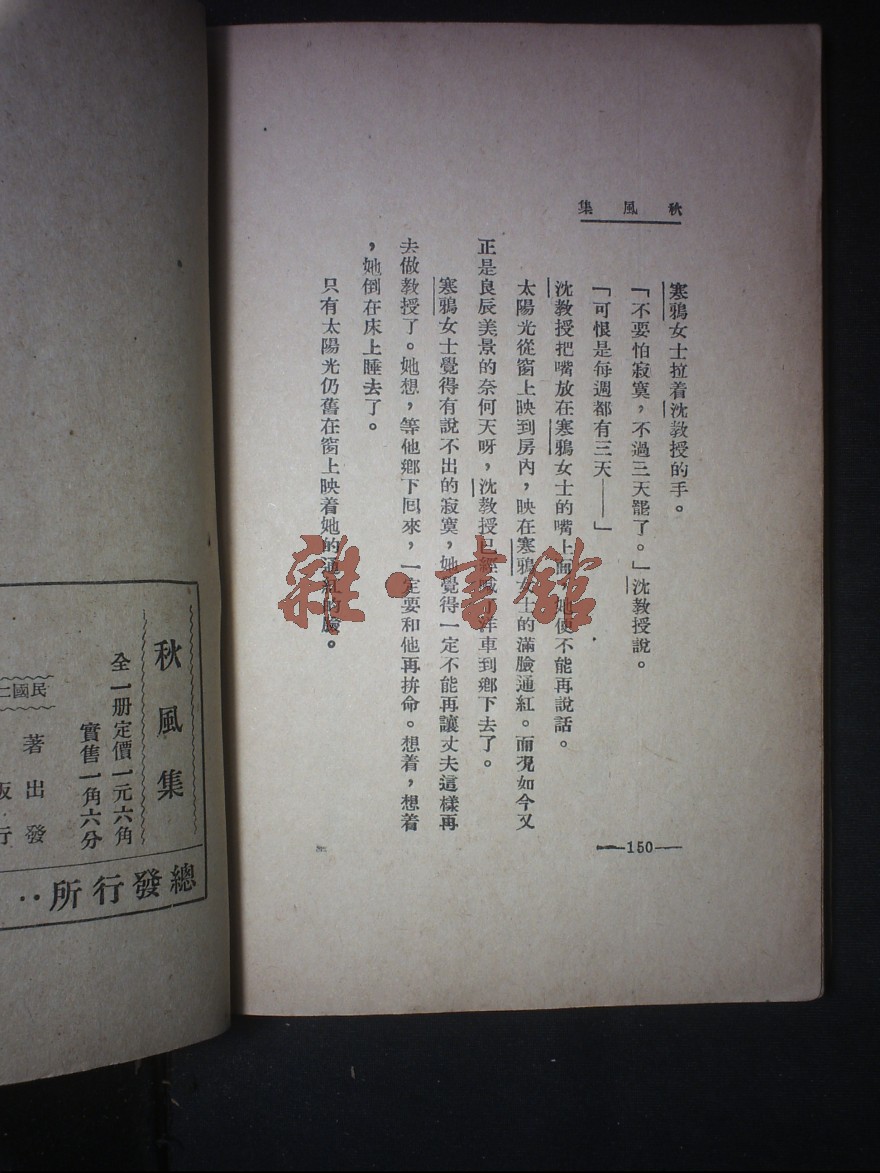 秋風集
寒鴉女士拉着沈教授的手。
「不要怕寂寞，不過三天罷了。」沈教授說。
「可恨是每週都有三天——」
沈教授把嘴放在寒鴉女士的嘴上面，她便不能再說話。
太陽光從窗上映到房內，映在寒鴉女士的滿臉通紅。而況如今又
正是良辰美景的奈何天呀，沈教授已經喊了洋車到鄉下去了。
寒鴉女士覺得有說不出的寂寞，她覺得一定不能再讓丈夫這樣再
去做教授了。她想，等他鄉下回來，一定要和他再拚命。想着，想着
，她倒在床上睡去了。
只有太陽光仍舊在窗上映着她的通紅的臉。
—150—
雜·書館
秋風集
全一册定價一元六角
實售一角六分
民國
著
出
發
版
行
總發行所：